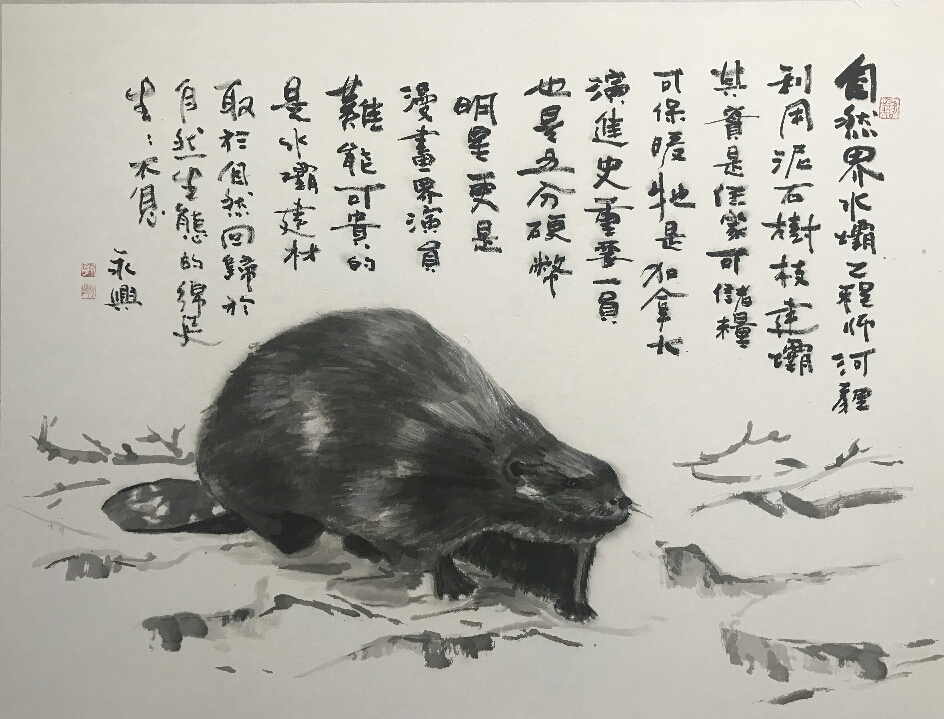 自然界水壩工程师河貍
利用泥石樹枝建壩
其實是住家可儲糧
可保暖牠是加拿大
演進史重要一員
也是五分硬幣
明星更是
漫畫界演員
難能可貴的
是水壩建材
取於自然回歸於
自然生態的綿延
生:不息
永興